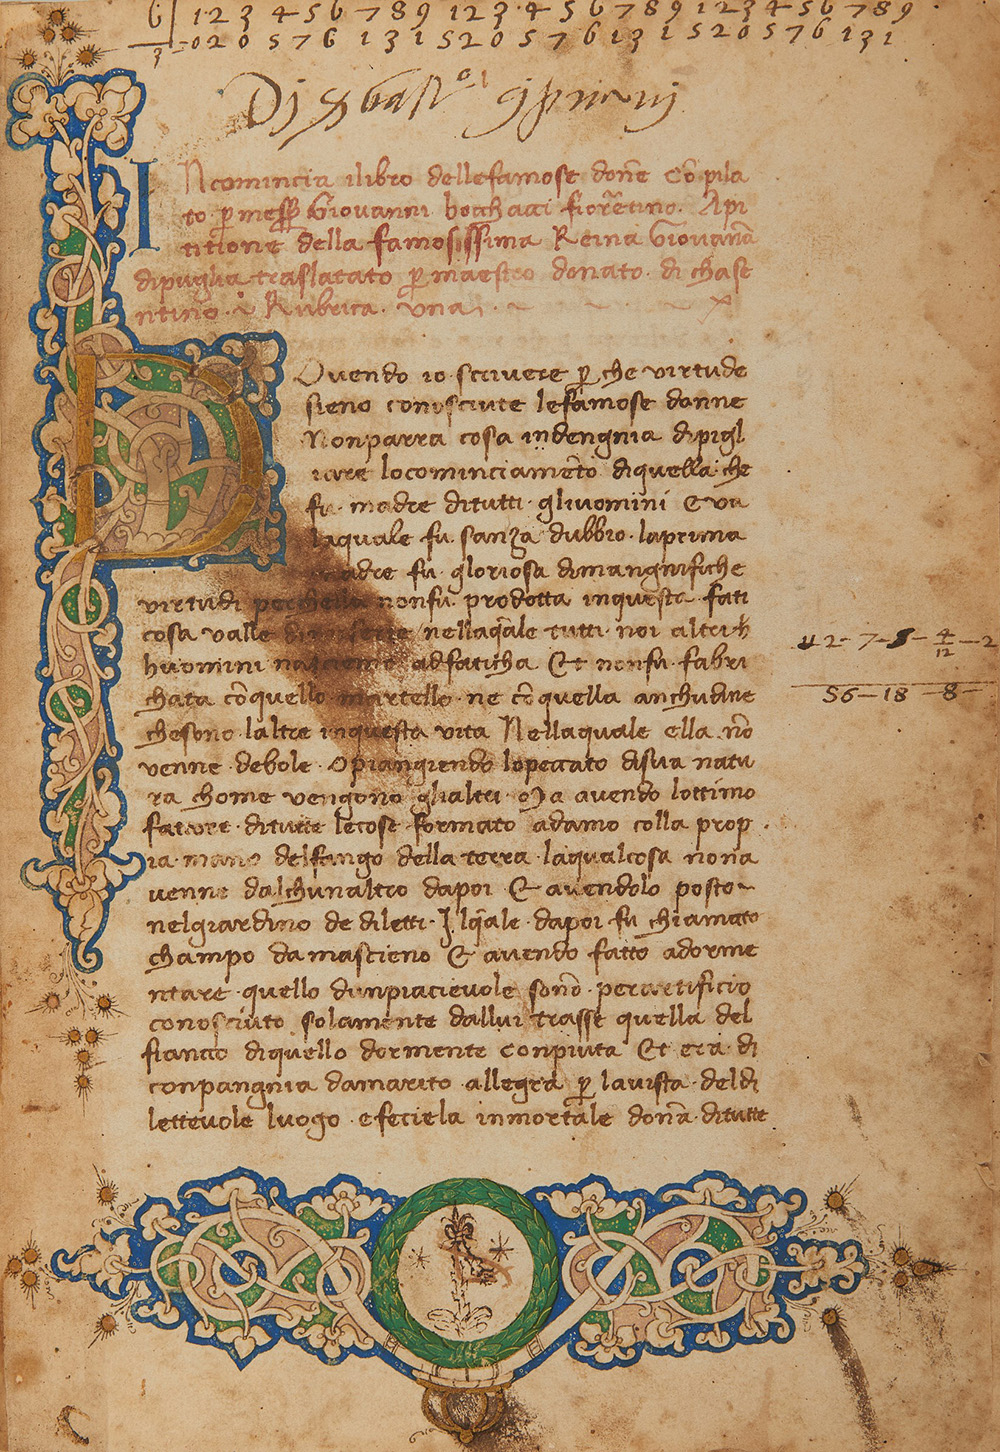 6 1 2 3 4 5 6 7 8 9 1 2 3 4 5 6 7 8 9 1 2 3 4 5 6 7 8 9
3 0 2 0 5 7 6 1 3 1 5 2 0 5 7 6 1 3 1 5 2 0 5 7 6 1 3 1
Dj
INcomincia ilibro dellefamose don̄e Cō pila
to p̄ mess̄ Giovanni bocchacci fiorētino. Api
titione della famosissima Reina Giovan̄a
dipuglia traslatato p̄ maestro donato di chase
ntino Rubrica una
DOvendo io scrivere p̄ che virtude
sieno conosciute lefamose donne
Nonparra cosa indengnia dipigl
iare locominciamēto diquella che
fu madre ditutti gliuomini E va
laquale fu sanza dubbio laprima
madre fu gloriosa dimangnifiche
virtudi perchella nonfu prodotta inquesta fati
cosa valle nellaq̄ale tutti noi altrih
huomini nasciemo adfaticha Et nonfu fabri
chata cōquello martello ne cōquella anchudine
chesono laltre inquesta vita Nellaquale ella nō
venne debole O piangiendo lopeccato disua natu
ra chome vengono glialtri Ma avendo lottimo
fattore ditutte lecose formato adamo colla prop
ia mano delfango della terra laqualcosa nona
venne dalchunaltro dapoi Et avendolo posto
nelgiardino de diletti Ilq̄ale dapoi fu chiamato
champo damascieno Et avendo fatto adorme
ntare quello dunpiacievole sonō perartificio
conosciuto solamente dallui trasse quella del
fianco diquello dormente conpiuta Et era di
conpangnia damarito allegra p̄ lavista deldi
lettevole luogo efeciela inmortale don̄a ditutte
2-7-8-4/12-2
56-18-8-